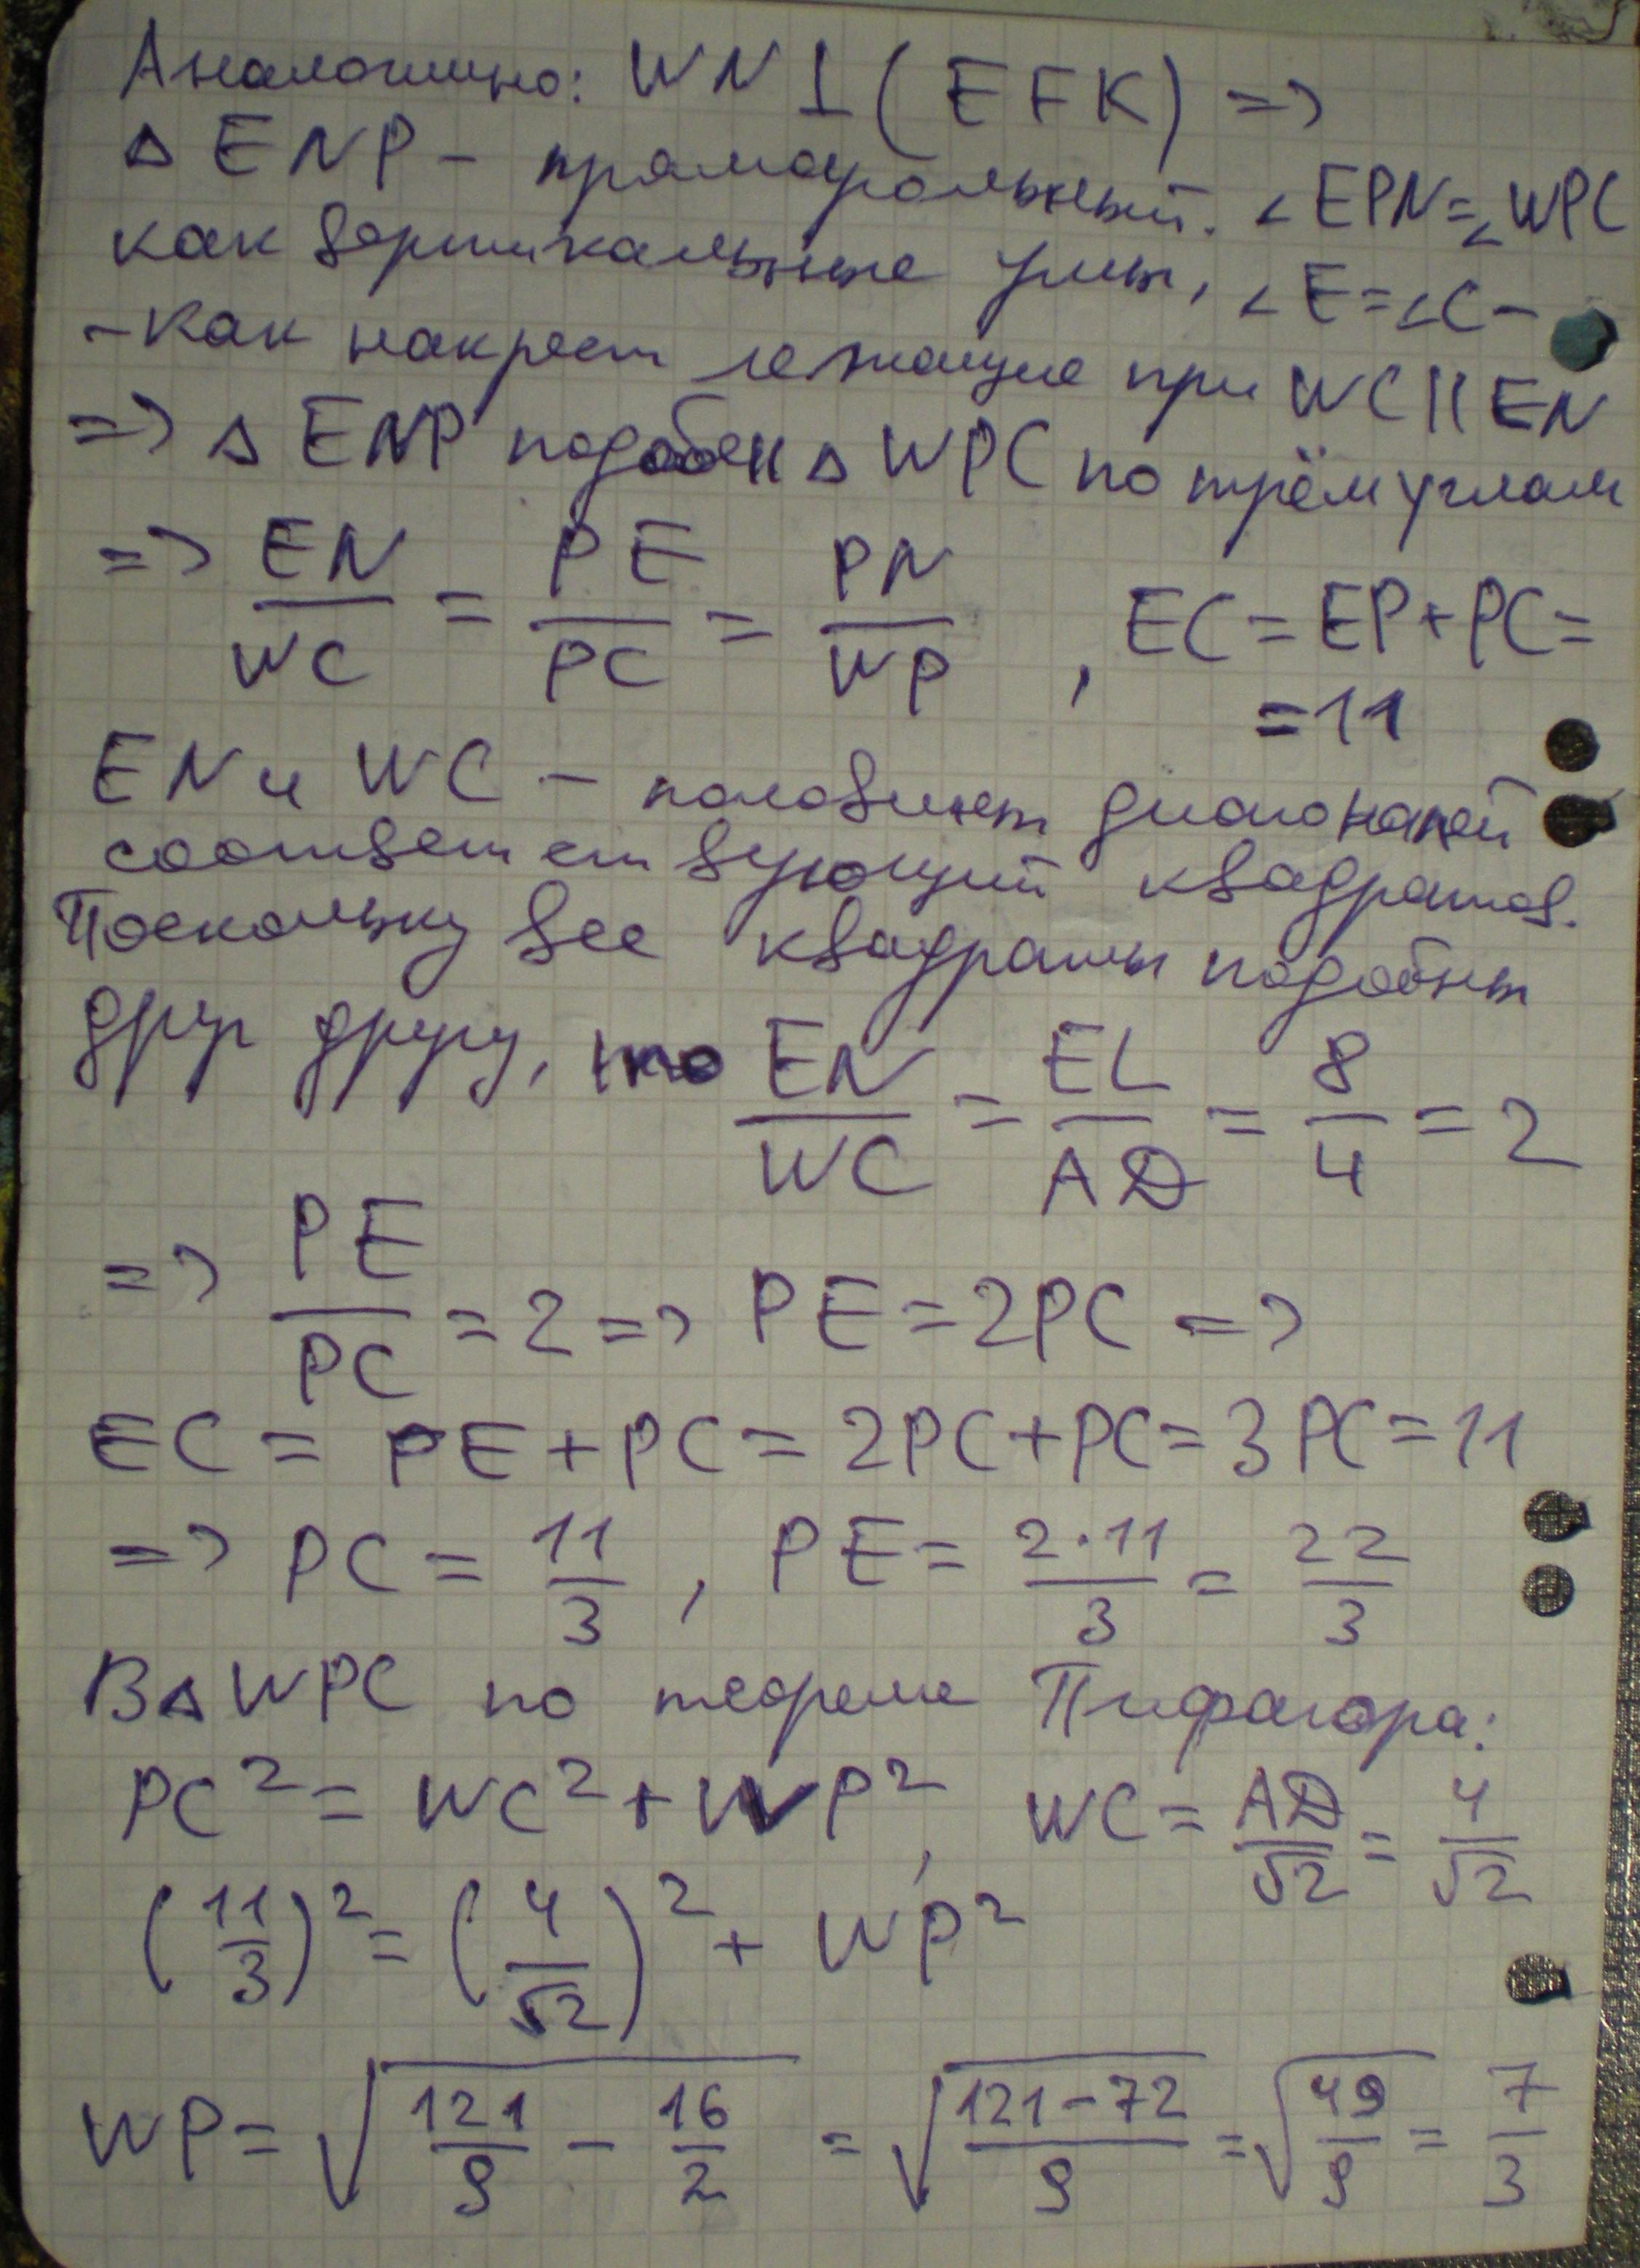 Аналогично: WN ⊥ (EFK) =>
△ ENP - прямоугольный. ∠EPN=∠WPC
как вертикальные углы, ∠E=∠C-
-как накрест лежащие при WC||EN
=> △ ENP подобен △ WPC по трём углам
=> EN/WC = PE/PC = PN/WP , EC = EP+PC=
=11
EN и WC - половины диагоналей
соответствующий квадратов.
Поскольку все квадраты подобны
друг другу, то EN/WC = EL/AD = 8/4 = 2
=> PE/PC = 2 => PE=2PC =>
EC = PE+PC = 2PC+PC=3PC=11
=> PC = 11/3 , PE = 2·11/3 = 22/3
В△WPC по теореме Пифагора:
PC² = WC²+WP² , WC = AD/√2 = 4/√2
(11/3)² = (4/√2)² + WP²
WP = √(121/9 - 16/2) = √((121-72)/9) = √(49/9) = 7/3